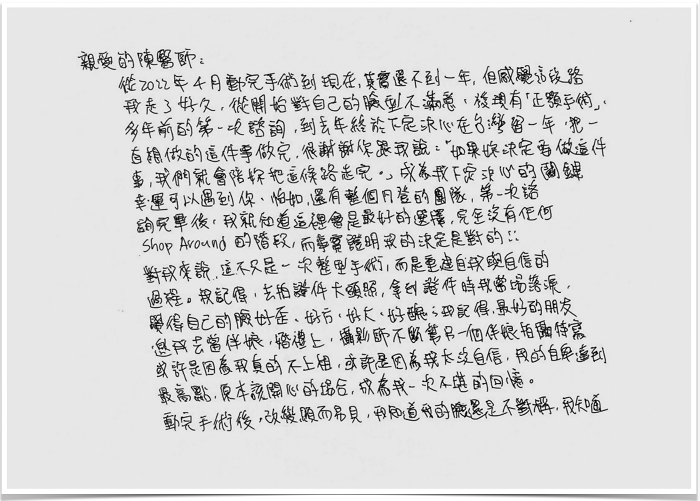 親愛的陳醫師：
從2022年4月動完手術到現在，其實還不到一年，但感覺這段路
我走了好久，從開始對自己的臉型不滿意，後現有「正顎手術」，
多年前的第一次諮詢，到去年終於下定決心在台灣留一年，把一
直想做的這件事做完，很謝謝你跟我說：“如果妳決定要做這件
事，我們就會陪妳把這條路走完。」成為我下定決心的關鍵
幸運可以遇到你、怡如，還有整個日登的團隊，第一次諮
詢完畢後，我就知道這裡會是最好的選擇，完全沒有任何
Shop Around 的階段，而事實證明我的決定是對的！！
對我來說，這不只是一次整型手術，而是重建自我與自信的
過程。我記得，去拍證件大頭照，拿到證件時我當場落淚，
覺得自己的臉好歪、好方、好大、好醜；我記得，最好的朋友
邀我去當伴娘，婚禮上，攝影師不斷幫另一個伴娘拍獨特寫
或許是因為我真的不上相，或許是因為我太沒自信，我的自卑達到
最高點，原本該開心的場合，成為我一次不堪的回憶。
動完手術後，改變顯而易見，我知道我的臉還是不對稱，我知道